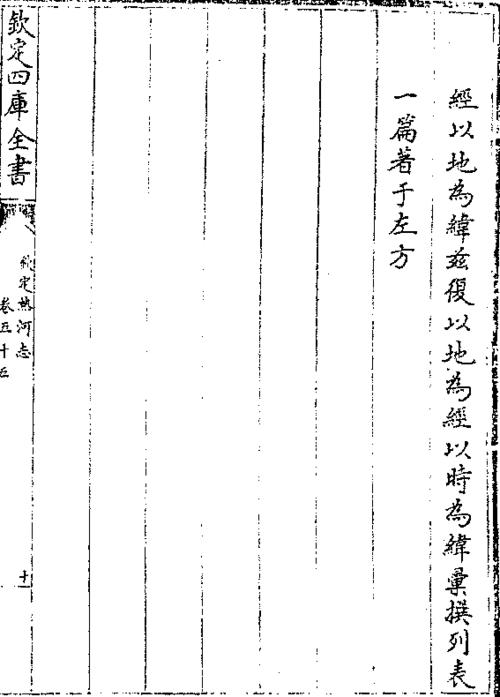 經以地為緯兹復以地為經以時為緯彚撰列表
一篇著于左方
欽定四庫全書
欽定熱河志
卷五十五
十